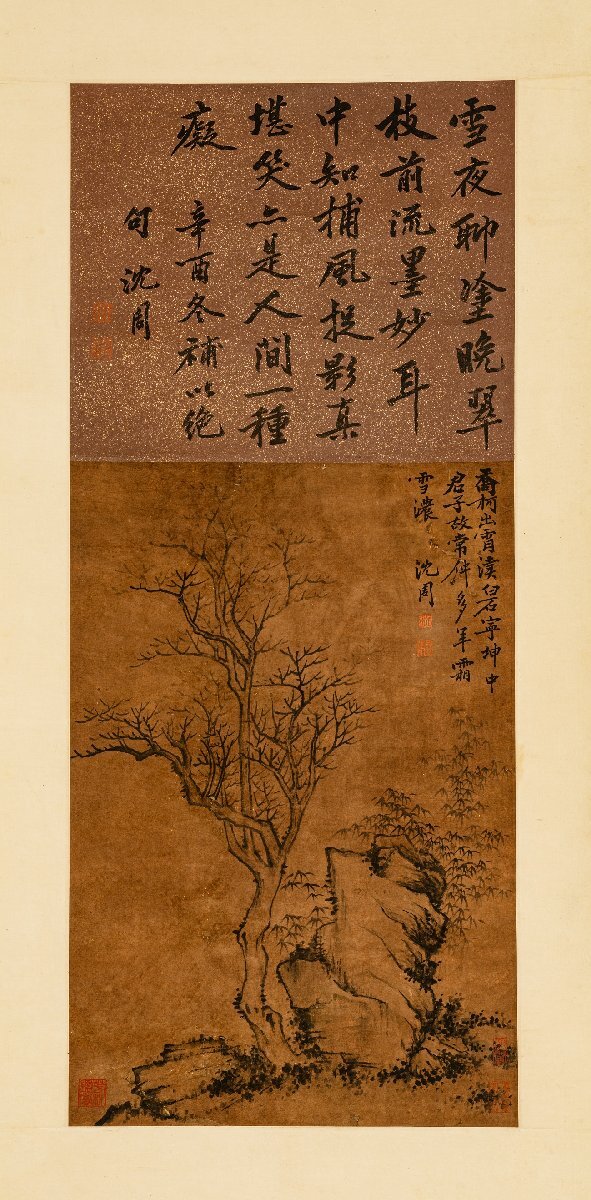 雪夜聊塗晚翠
枝前流墨妙耳
中知捕風捉影真
堪笑亦是人間一種
癡
辛酉冬補以絶
句 沈周
喬柯出霄漢白石寧坤中
君子故常伴多年霜
雪濃 沈周